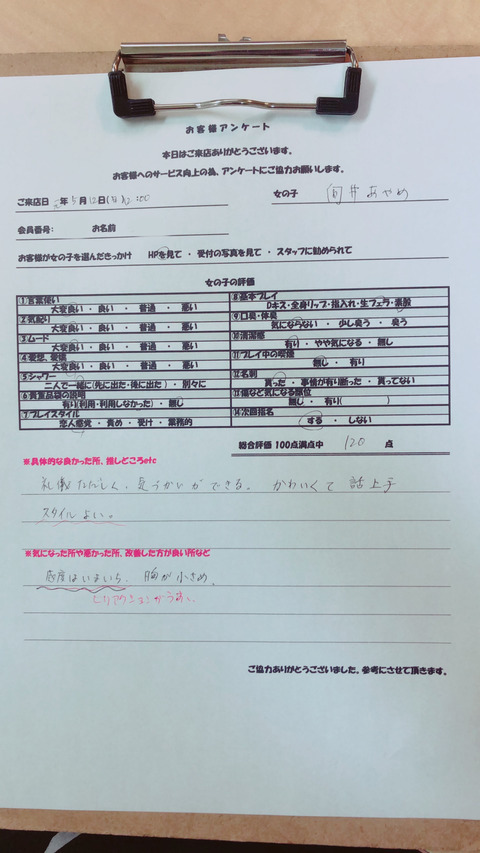 お客様アンケート
本日はご来店ありがとうございます。
お客様へのサービス向上の為、アンケートにご協力お願いします。
ご来店日 元年 5月 12日(日) 12:00
女の子 向井あやめ
会員番号: お名前
お客様が女の子を選んだきっかけ HPを見て ・ 受付の写真を見て ・ スタッフに勧められて
女の子の評価
①言葉使い
大変良い ・ 良い ・ 普通 ・ 悪い
②気配り
大変良い ・ 良い ・ 普通 ・ 悪い
③ムード
大変良い ・ 良い ・ 普通 ・ 悪い
④愛想、愛嬌
大変良い ・ 良い ・ 普通 ・ 悪い
⑤シャワー
二人で一緒に(先に出た・後に出た) ・ 別々に
⑥貴重品袋の説明
有り(利用・利用しなかった) ・ 無し
⑦プレイスタイル
恋人感覚 ・ 責め ・ 受け ・ 業務的
⑧基本プレイ
Dキス・全身リップ・指入れ・生フェラ・素股
⑨口臭・体臭
気にならない ・ 少し臭う ・ 臭う
⑩清潔感
有り ・ やや気になる ・ 無し
⑪プレイ中の喫煙
無し ・ 有り
⑫名刺
貰った ・ 事情が有り断った ・ 貰ってない
⑬傷など気になる部位
無し ・ 有り( )
⑭次回指名
する ・ しない
総合評価 100点満点中 120 点
※具体的な良かった所、推しどころetc
礼儀ただしく、気づかいができる。 かわいくて 話上手
スタイルよい。
※気になった所や悪かった所、改善した方が良い所など
感度はいまいち、 胸が小さめ。
リアクションがうすい、
ご協力ありがとうございました。参考にさせて頂きます。